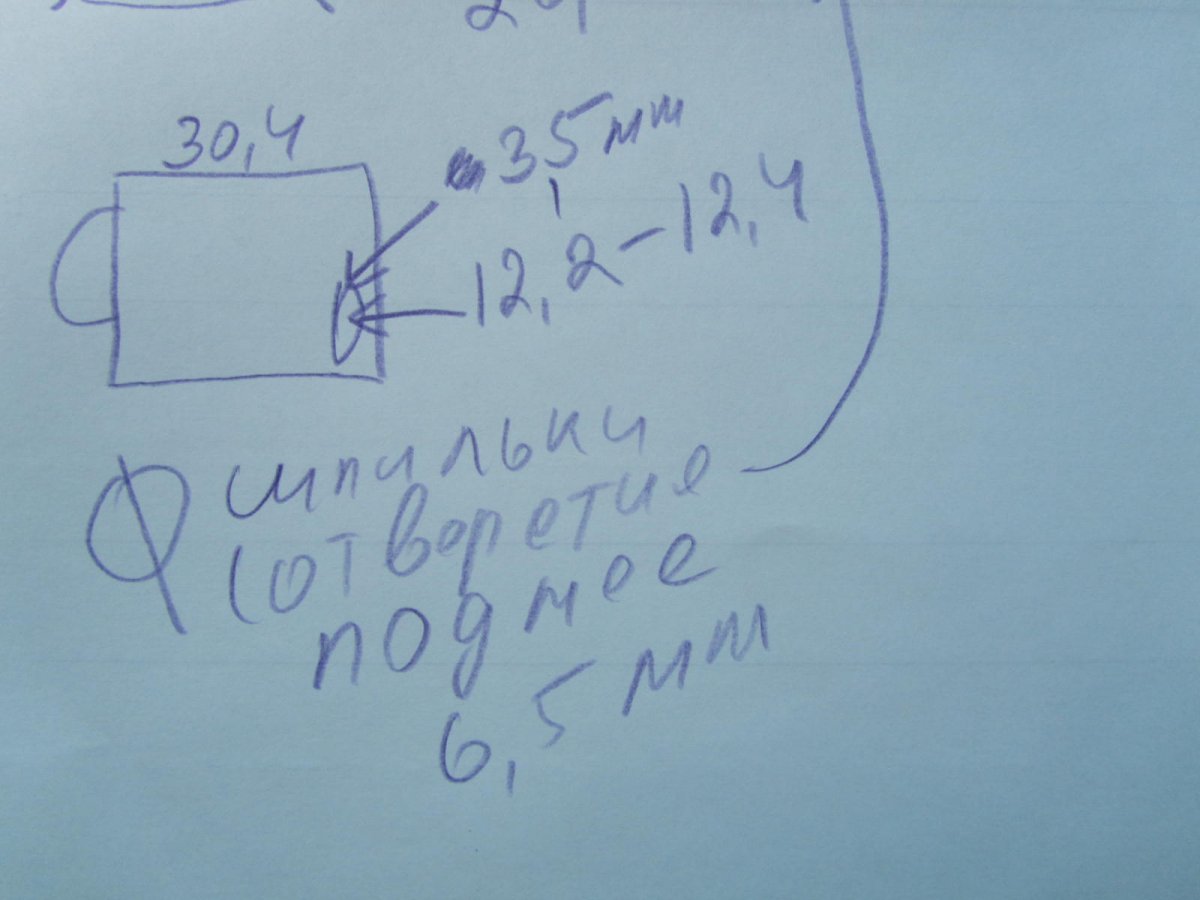 30,4
35 мм
12,2-12,4
Ф шпильки
(отверстие
под нее
6,5 мм